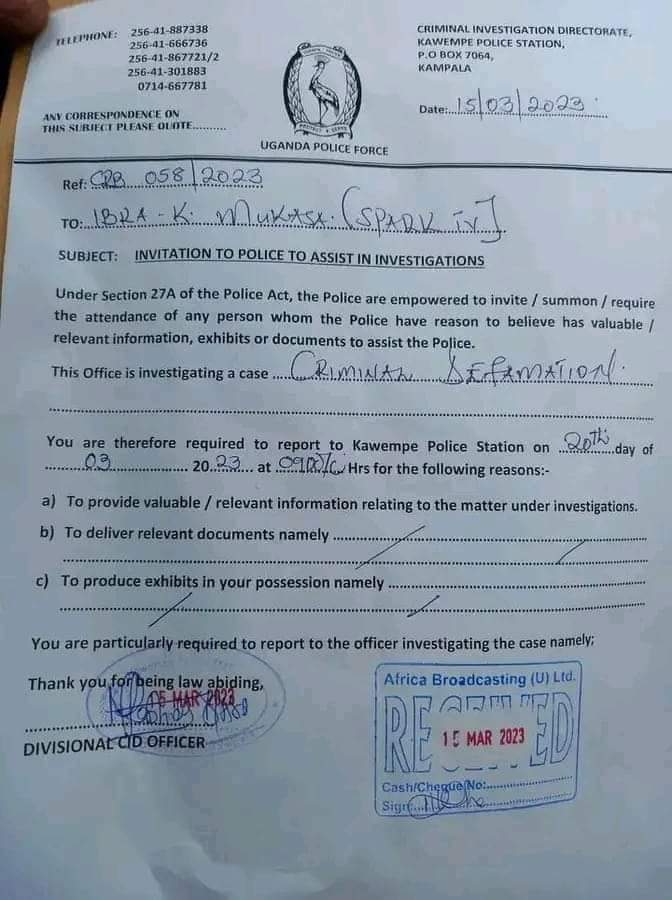 TELEPHONE: 256-41-887338
256-41-666736
256-41-867721/2
256-41-301883
0714-667781
ANY CORRESPONDENCE ON
THIS SUBJECT PLEASE QUOTE..........
PROTECT & SERVE
UGANDA POLICE FORCE
CRIMINAL INVESTIGATION DIRECTORATE,
KAWEMPE POLICE STATION,
P.O BOX 7064,
KAMPALA
Date:....15/03/2023
Ref: CRB 058/2023
TO: IBRA - K. MUKASA. (SPARK TV)
SUBJECT: INVITATION TO POLICE TO ASSIST IN INVESTIGATIONS
Under Section 27A of the Police Act, the Police are empowered to invite / summon / require
the attendance of any person whom the Police have reason to believe has valuable /
relevant information, exhibits or documents to assist the Police.
This Office is investigating a case ....CRIMINAL DEFAMATION.
You are therefore required to report to Kawempe Police Station on ...20th...day of
03 2023 at Hrs for the following reasons:-
a) To provide valuable / relevant information relating to the matter under investigations.
b) To deliver relevant documents namely
c) To produce exhibits in your possession namely
You are particularly required to report to the officer investigating the case namely;
Thank you for being law abiding,
MAR 2023
DIVISIONAL CID OFFICER
Africa Broadcasting (U) Ltd.
RECEIVED
15 MAR 2023
Cash/Cheque No:
Sign: